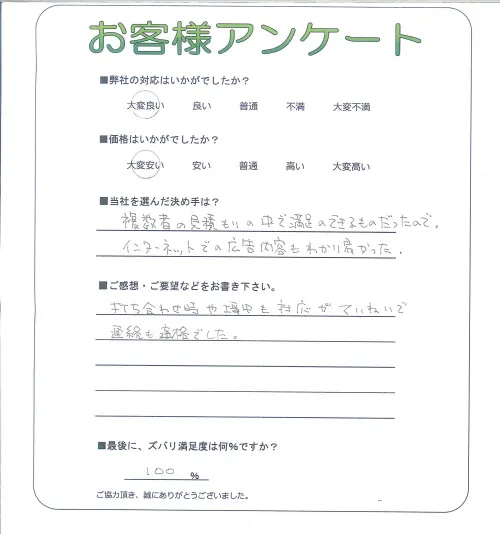 お客様アンケート
■弊社の対応はいかがでしたか?
大変良い 良い 普通 不満 大変不満
■価格はいかがでしたか?
大変安い 安い 普通 高い 大変高い
■当社を選んだ決め手は?
複数者の見積もりの中で満足のできるものだったので、
インターネットでの広告内容もわかり易かった。
■ご感想・ご要望などをお書き下さい。
打ち合わせ時や工事中も対応がていねいで
連絡も
でした。
■最後に、ズバリ満足度は何%ですか?
100 %
ご協力頂き、誠にありがとうございました。